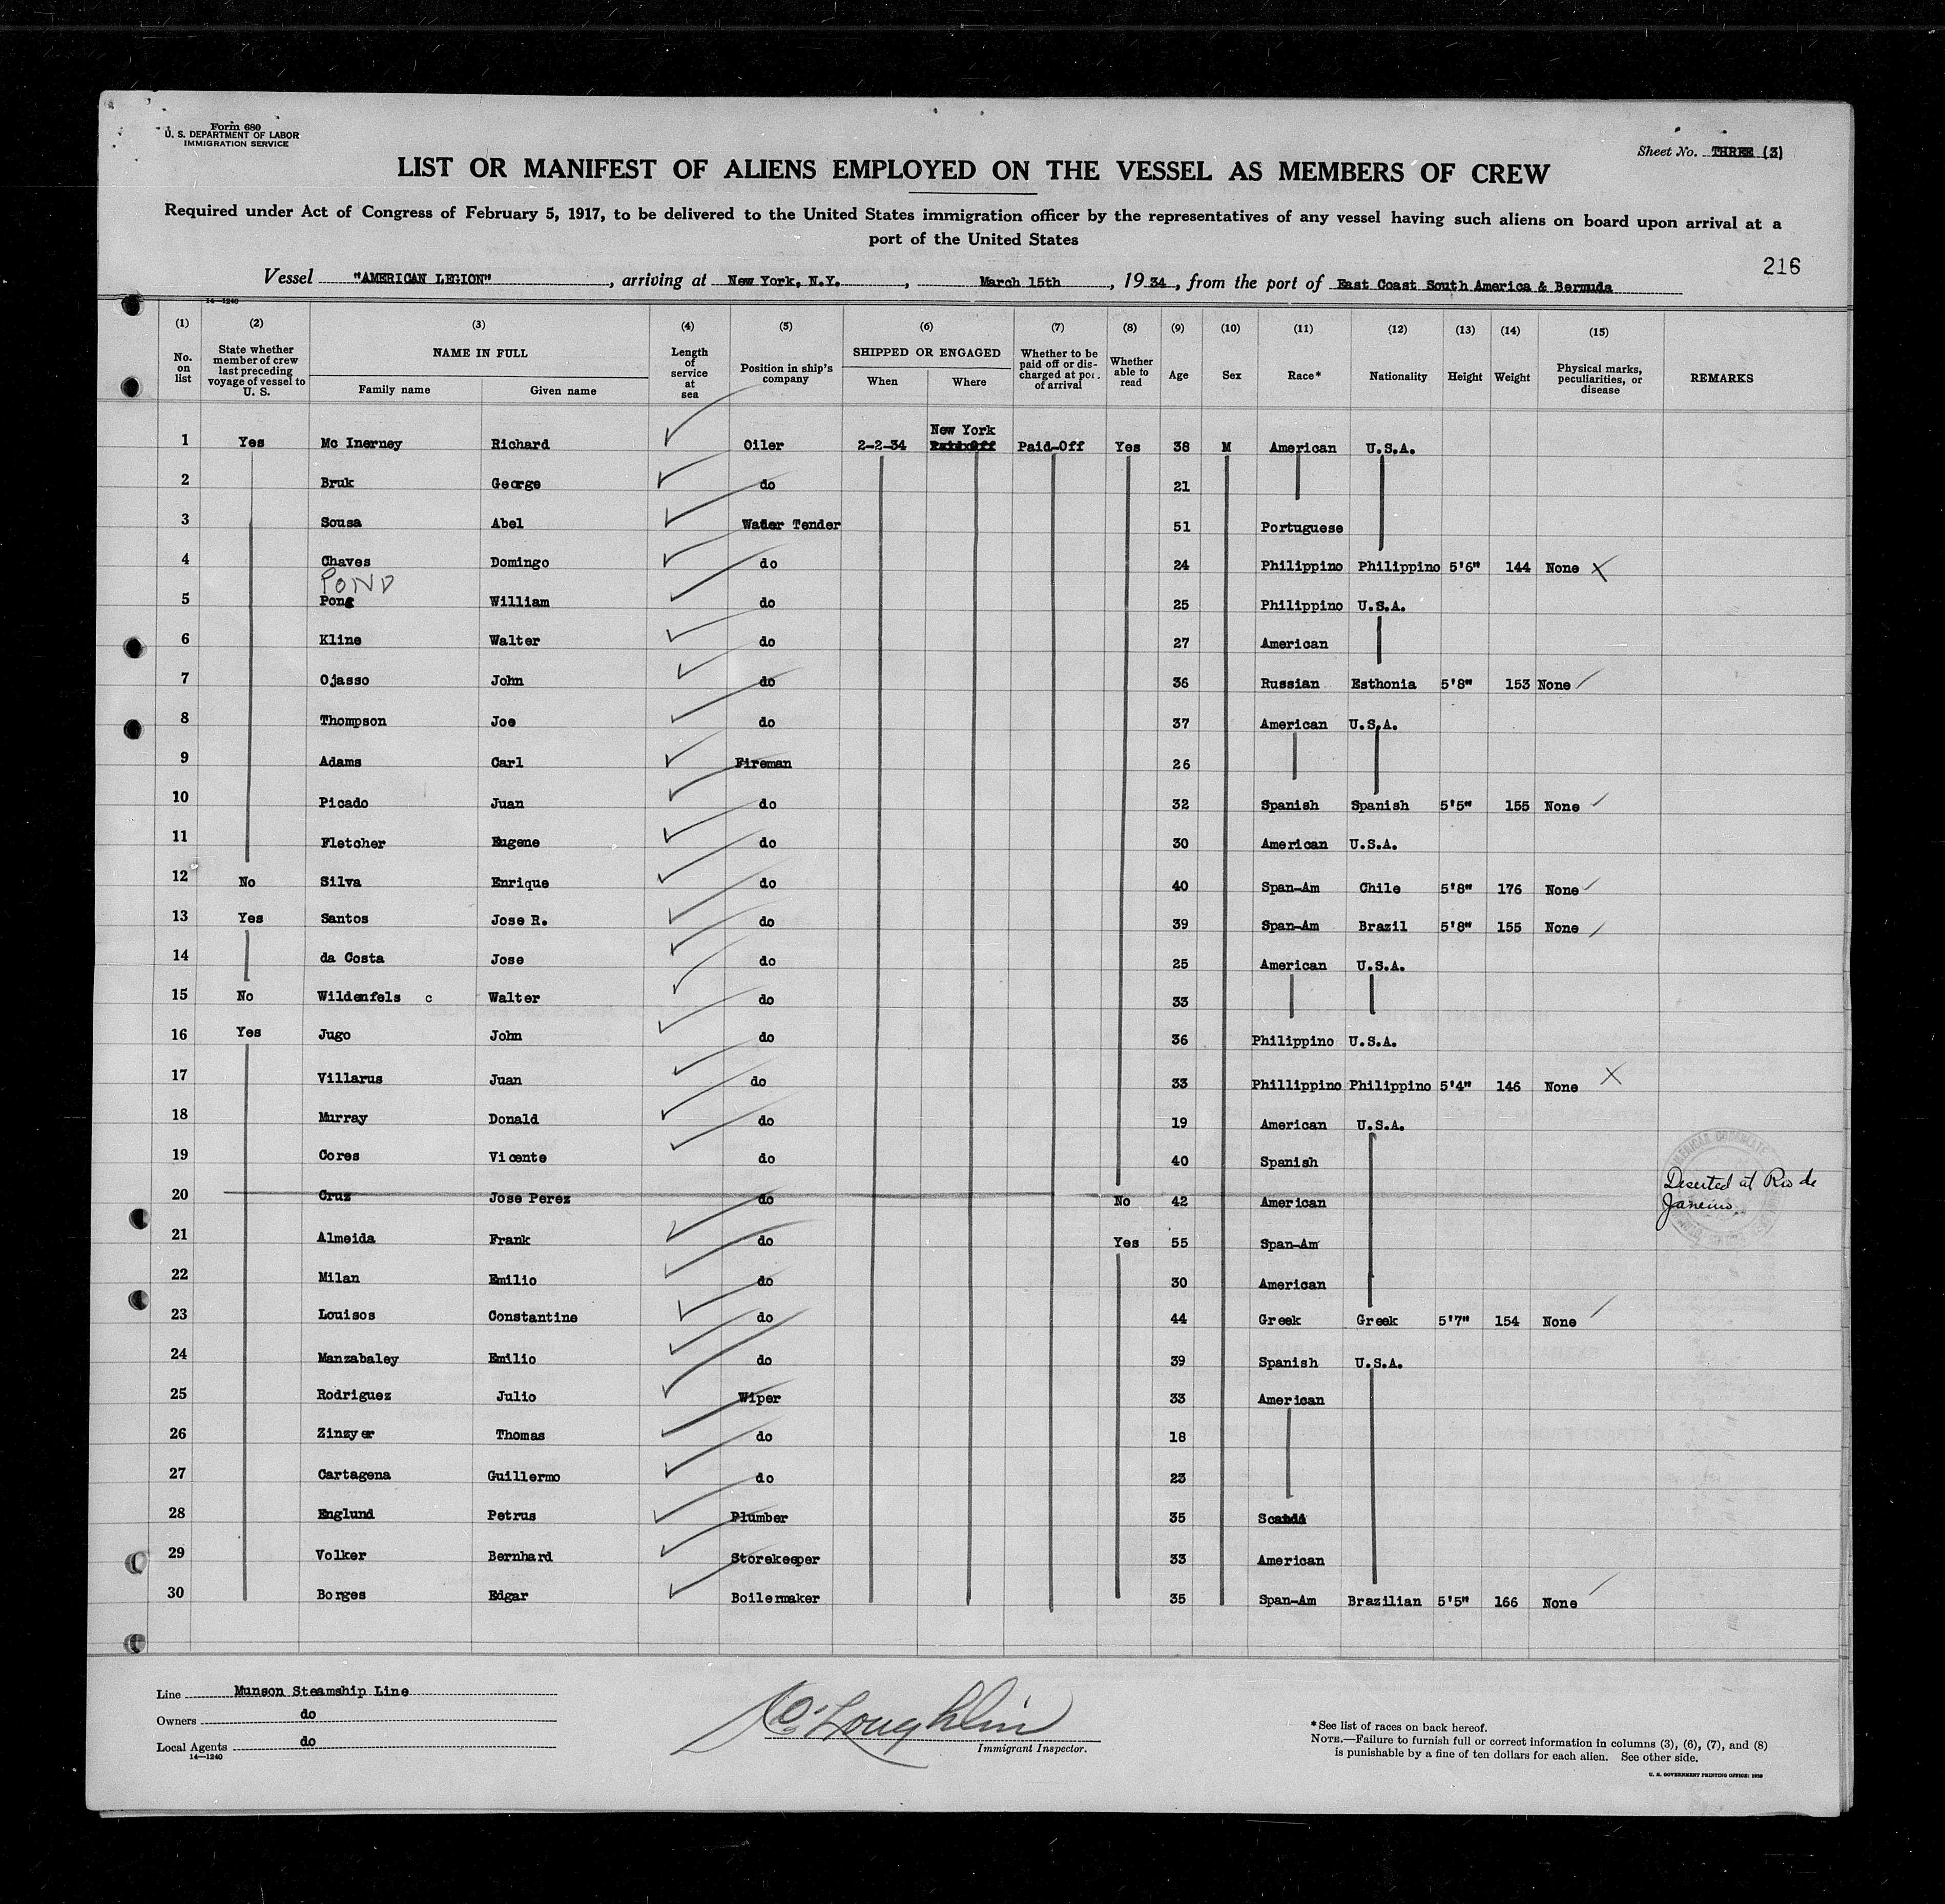 Form 680
U. S. DEPARTMENT OF LABOR
IMMIGRATION SERVICE
Sheet No. THREE (3)
LIST OR MANIFEST OF ALIENS EMPLOYED ON THE VESSEL AS MEMBERS OF CREW
Required under Act of Congress of February 5, 1917, to be delivered to the United States immigration officer by the representatives of any vessel having such aliens on board upon arrival at a
port of the United States
216
Vessel "AMERICAN LEGION", arriving at New York, N.Y., March 15th, 1934, from the port of East Coast South America & Bermuda
14—1240
(1) (2) (3) (4) (5) (6) (7) (8) (9) (10) (11) (12) (13) (14) (15)
No. on list
State whether member of crew last preceding voyage of vessel to U. S.
NAME IN FULL
Family name
Given name
Length of service at sea
Position in ship's company
SHIPPED OR ENGAGED
When
Where
Whether to be paid off or discharged at port of arrival
Whether able to read
Age
Sex
Race*
Nationality
Height
Weight
Physical marks, peculiarities, or disease
REMARKS
New York
1 Yes Mc Inerney Richard Oiler 2-2-34 Paid-Off Paid-Off Yes 38 M American U.S.A.
2 Bruk George do 21
3 Sousa Abel Water Tender 51 Portuguese
4 Chaves Domingo do 24 Philippino Philippino 5'6" 144 None X
POND
5 Pong William do 25 Philippino U.S.A.
6 Kline Walter do 27 American
7 Ojasso John do 36 Russian Esthonia 5'8" 153 None
8 Thompson Joe do 37 American U.S.A.
9 Adams Carl Fireman 26
10 Picado Juan do 32 Spanish Spanish 5'5" 155 None
11 Fletcher Eugene do 30 American U.S.A.
12 No Silva Enrique do 40 Span-Am Chile 5'8" 176 None
13 Yes Santos Jose R. do 39 Span-Am Brazil 5'8" 155 None
14 da Costa Jose do 25 American U.S.A.
15 No Wildenfels c Walter do 33
16 Yes Jugo John do 36 Philippino U.S.A.
17 Villarus Juan do 33 Phillippino Philippino 5'4" 146 None X
18 Murray Donald do 19 American U.S.A.
19 Cores Vicente do 40 Spanish
20 Cruz Jose Perez do No 42 American Deserted at Rio de
Janeiro
21 Almeida Frank do Yes 55 Span-Am
22 Milan Emilio do 30 American
23 Louisos Constantine do 44 Greek Greek 5'7" 154 None
24 Manzabaley Emilio do 39 Spanish U.S.A.
25 Rodriguez Julio Wiper 33 American
26 Zinzyer Thomas do 18
27 Cartagena Guillermo do 23
28 Englund Petrus Plumber 35 Scandi
29 Volker Bernhard Storekeeper 33 American
30 Borges Edgar Boilermaker 35 Span-Am Brazilian 5'5" 166 None
Line Munson Steamship Line
Owners do
Local Agents do
14—1240
McLoughlin
Immigrant Inspector.
*See list of races on back hereof.
NOTE.—Failure to furnish full or correct information in columns (3), (6), (7), and (8)
is punishable by a fine of ten dollars for each alien. See other side.
U. S. GOVERNMENT PRINTING OFFICE: